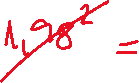 1,98² =